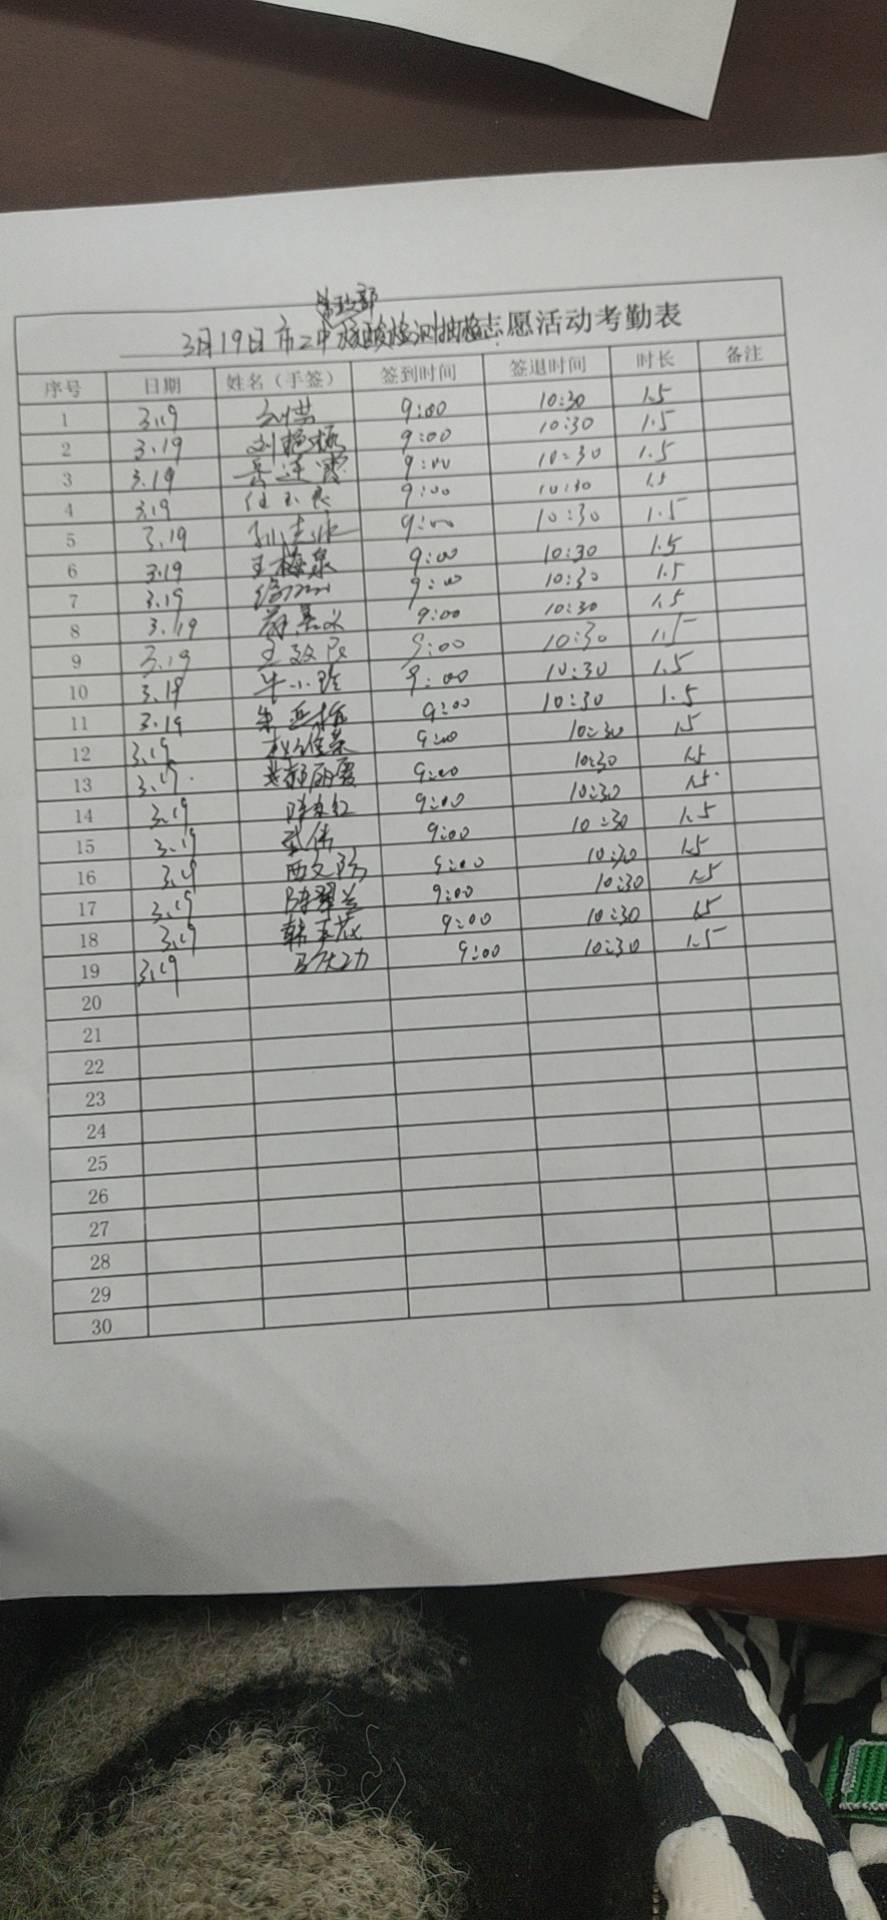 3月19日市二中核酸检测抽检志愿活动考勤表
序号 日期 姓名（手签） 签到时间 签退时间 时长 备注
1 3.19 9:00 10:30 1.5
2 3.19 刘艳梅 9:00 10:30 1.5
3 3.19 9:00 10:30 1.5
4 3.19 任玉良 9:00 10:30 1.5
5 3.19 9:00 10:30 1.5
6 3.19 王梅泉 9:00 10:30 1.5
7 3.19 9:00 10:30 1.5
8 3.19 9:00 10:30 1.5
9 3.19 9:00 10:30 1.5
10 3.19 牛小玲 9:00 10:30 1.5
11 3.19 9:00 10:30 1.5
12 3.19 9:00 10:30 1.5
13 3.19 9:00 10:30 1.5
14 3.19 9:00 10:30 1.5
15 3.19 武伟 9:00 10:30 1.5
16 3.19 9:00 10:30 1.5
17 3.19 陈翠兰 9:00 10:30 1.5
18 3.19 9:00 10:30 1.5
19 3.19 9:00 10:30 1.5
20
21
22
23
24
25
26
27
28
29
30